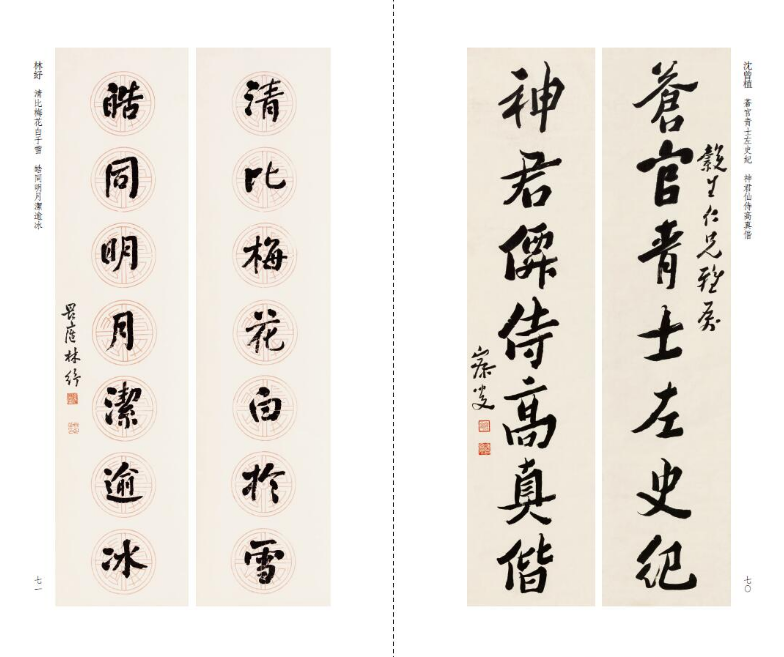 沈曾植 蒼官青士左史紀 神君仙侍高真偕
七〇
穀生仁兄雅屬
蒼官青士左史紀
神君僊侍高真偕
寐叟
清比梅花白於雪
皓同明月潔逾冰
畏廬林紓
林紓 清比梅花白于雪 皓同明月潔逾冰
七一